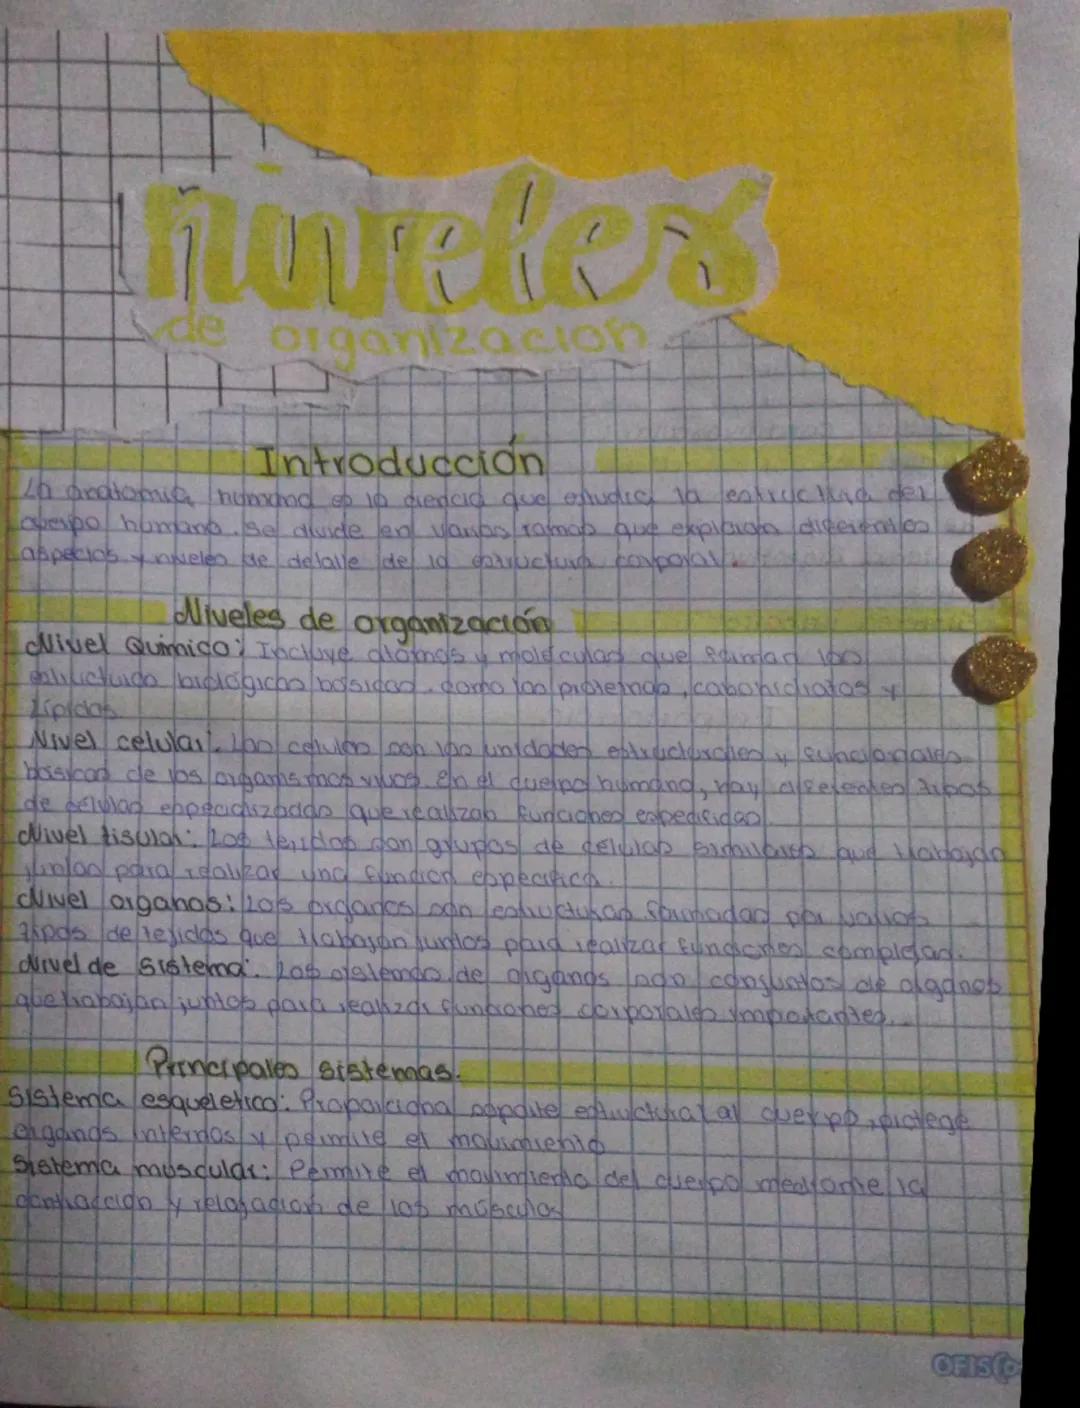 niveles
de organizacion
Introducción
La anatomia humana es la ciencia que estudia la estructura del
cuerpo humano. Se divide en varias ramas que exploran diferentes
aspectos y niveles de detalle de la estructura corporal.
Niveles de organización
Nivel Químico: Incluye átomos y moléculas que forman las
estructuras biológicas básicas. como las proteinas, carbohidratos y
lipidos
Nivel celular: Las celulas son las unidades estructurales y funcionales
basicas de los organismos vivos. En el cuerpo humano, hay diferentes tipos
de celulas especializadas que realizan funciones especificas.
Nivel tisular: Los tejidos son grupos de celulas similares que trabajan
juntas para realizar una funcion especifica.
Nivel organos: Los organos son estructuras formadas por varios
tipos de tejidos que trabajan juntos para realizar funciones complejas.
Nivel de sistema: Los sistemas de organos son conjuntos de organos
que trabajan juntos para realizar funciones corporales importantes.
Principales sistemas.
Sistema esqueletico: Proporciona soporte estructural al cuerpo, protege
organos internos y permite el movimiento
Sistema muscular: Permite el movimiento del cuerpo mediante la
contraccion y relajacion de los músculos
OFISCO